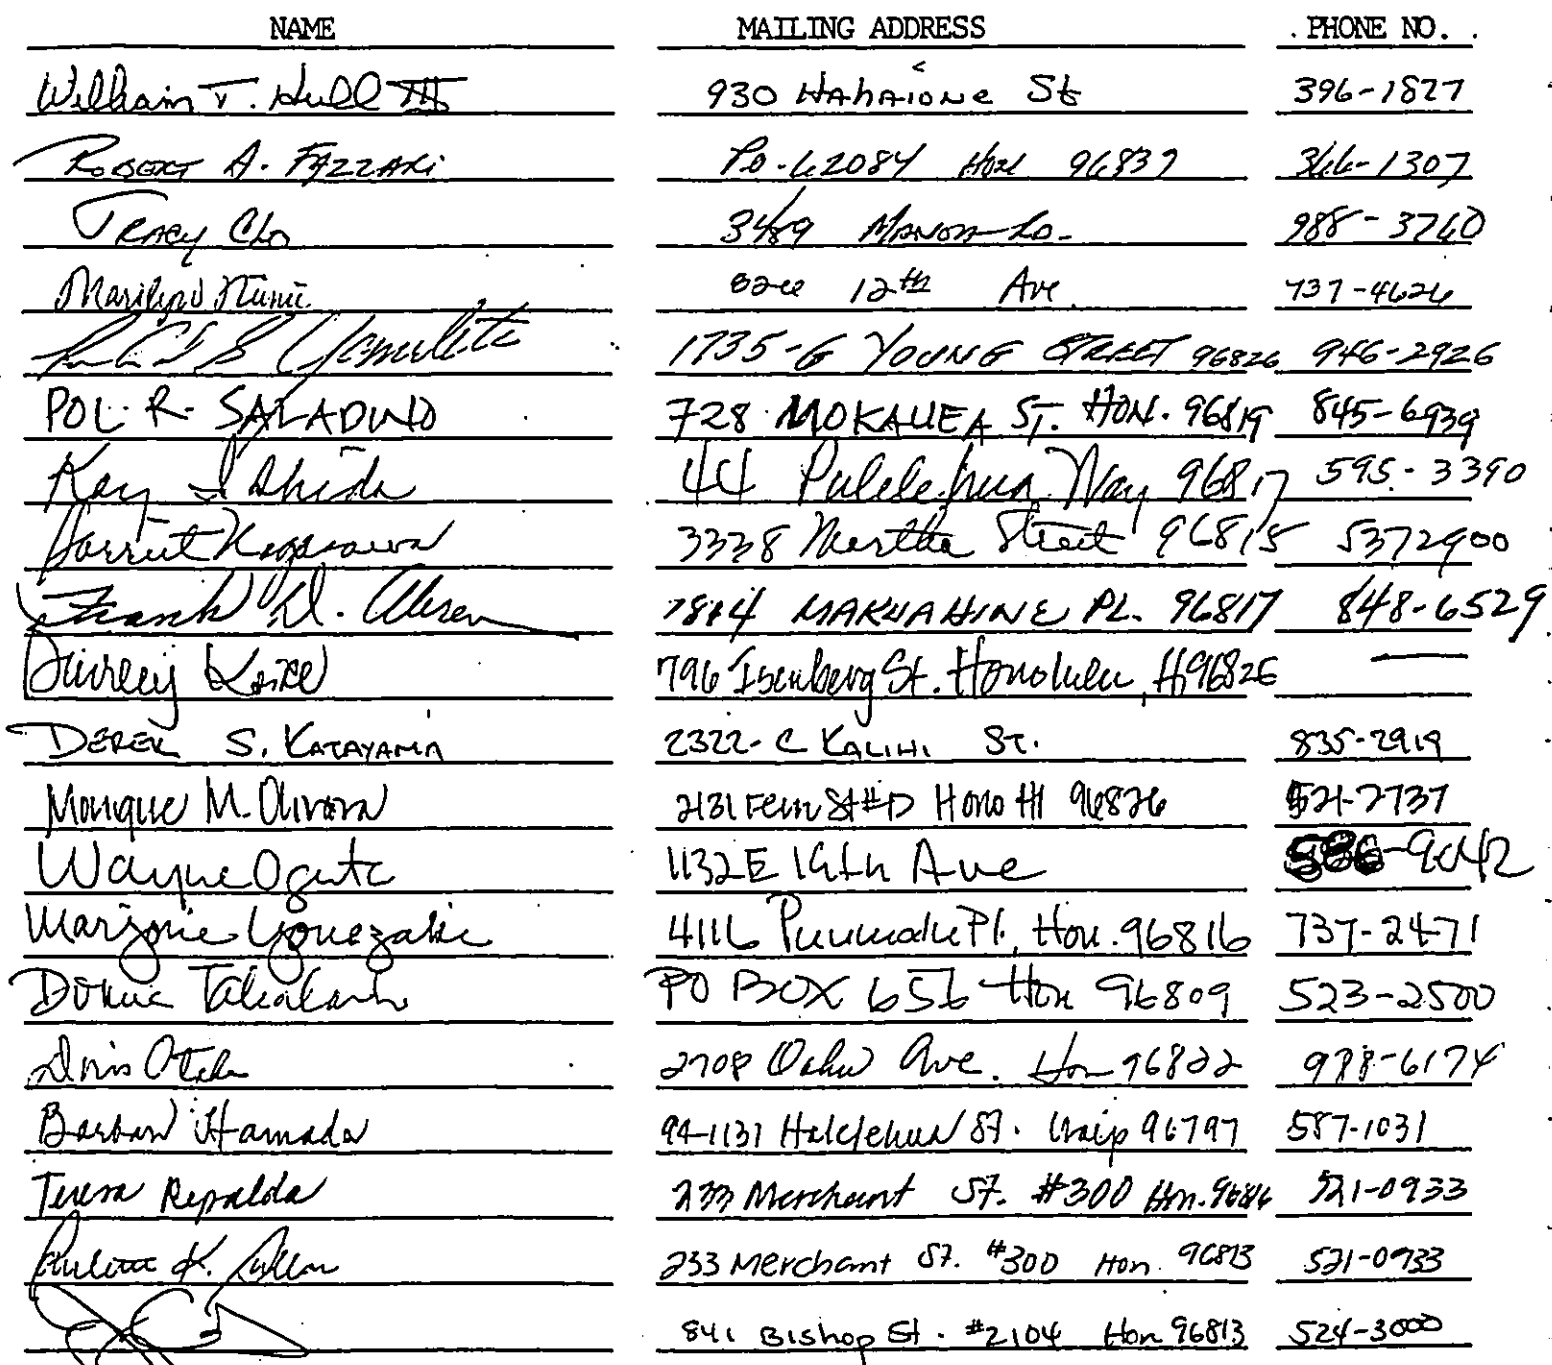 NAME MAILING ADDRESS PHONE NO.
William T. Hull III 930 Hahaione St 396-1827
Robert A. Fazzari P.O. 62084 Hon 96839 366-1307
Tracy Cho 3489 Manoa 988-3760
Marilyn 12th Ave. 737-4626
1735-G YOUNG STREET 96826 946-2926
POL. R. SALADINO 728 MOKAUEA ST. HON. 96819 845-6939
Kay Ishida 44 Pulelehua Way 96817 595-3390
Harriet Nagasawa 3338 Martha Street 96815 5372900
Frank 1884 MAKUAHINE PL. 96817 848-6529
796 Isenberg St. Honolulu, HI 96826 —
DEREK S. KATAYAMA 2322-C KALIHI ST. 835-2919
Monique M. 2131 Fern St #D Hono HI 96826 521-2737
Wayne Ogata 1132E 19th Ave
Marjorie Yonezaki 4116 Puumalu Pl, Hon. 96816 737-2471
Donna PO BOX 656 Hon 96809 523-2500
2708 Oahu Ave. Hon 96822 988-6174
Barbara Hamada 94-1131 St. Waip 96797 587-1031
Teresa 233 Merchant St. #300 Hon. 521-0933
K. 233 Merchant St. #300 Hon. 96813 521-0933
841 Bishop St. #2104 Hon 96813 524-3000